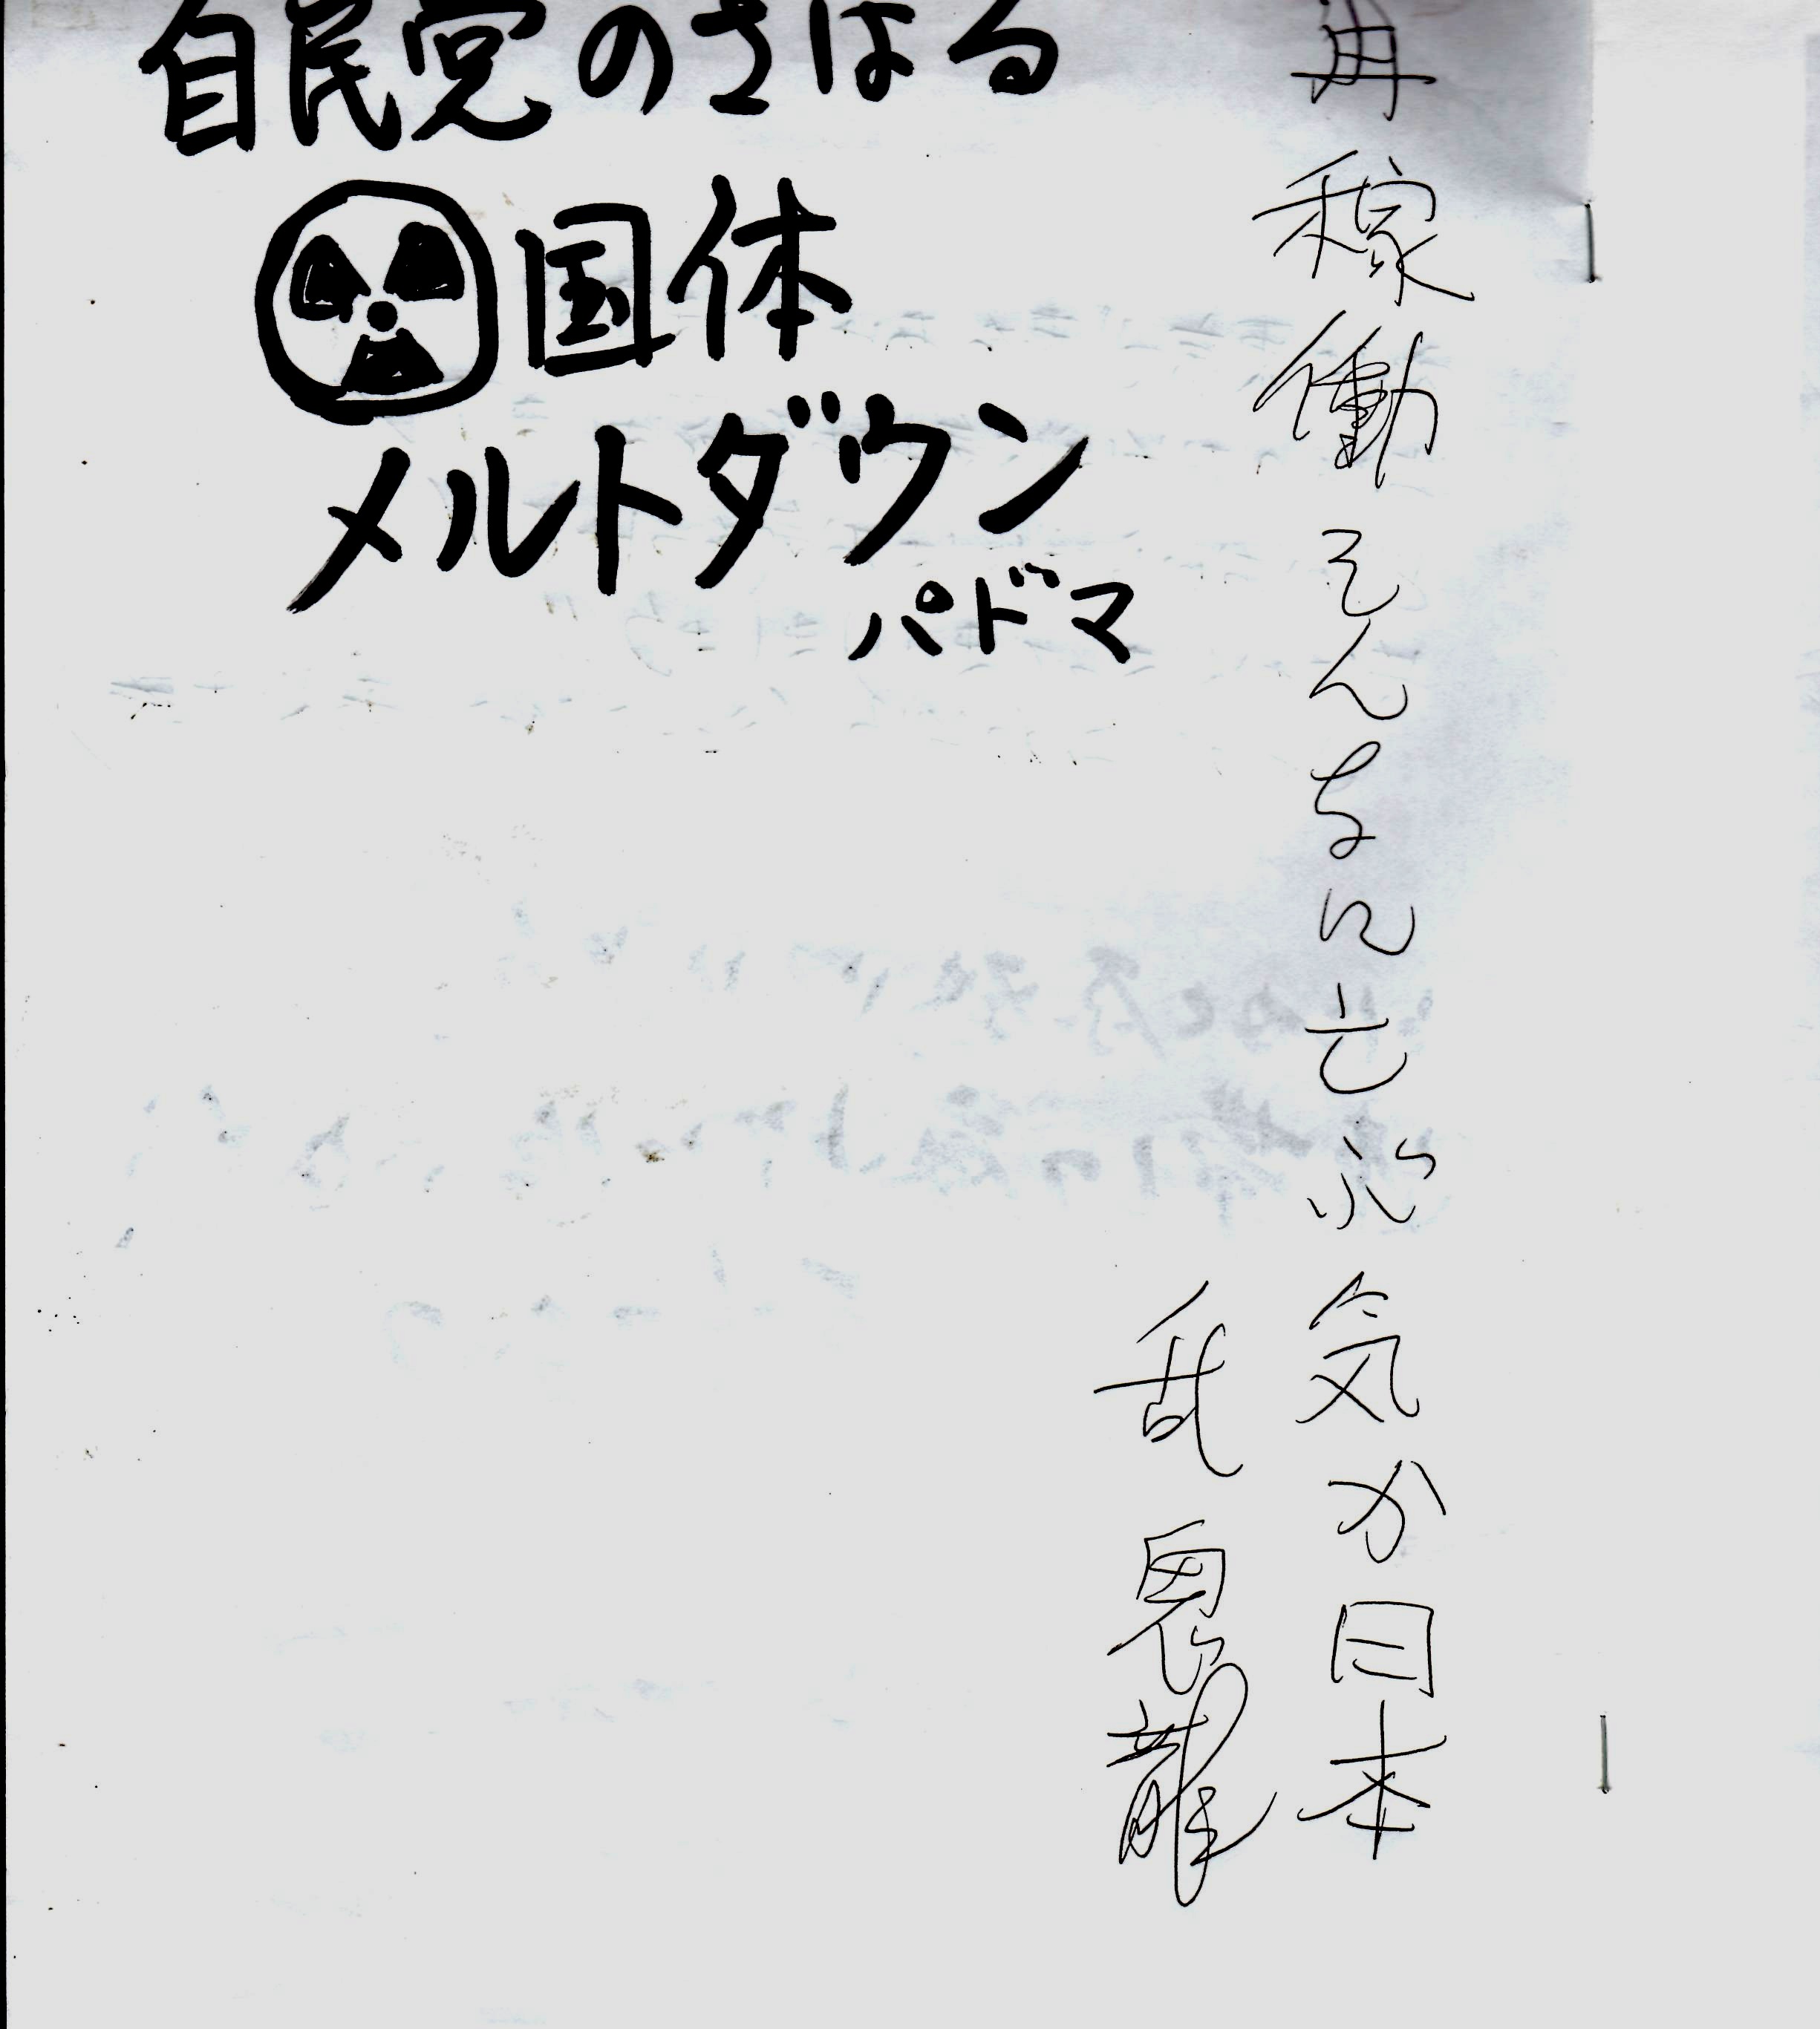 再稼働そんなに亡ぶ気か日本
乱鬼龍
自民党のさばる
国体
メルトダウン
パドマ